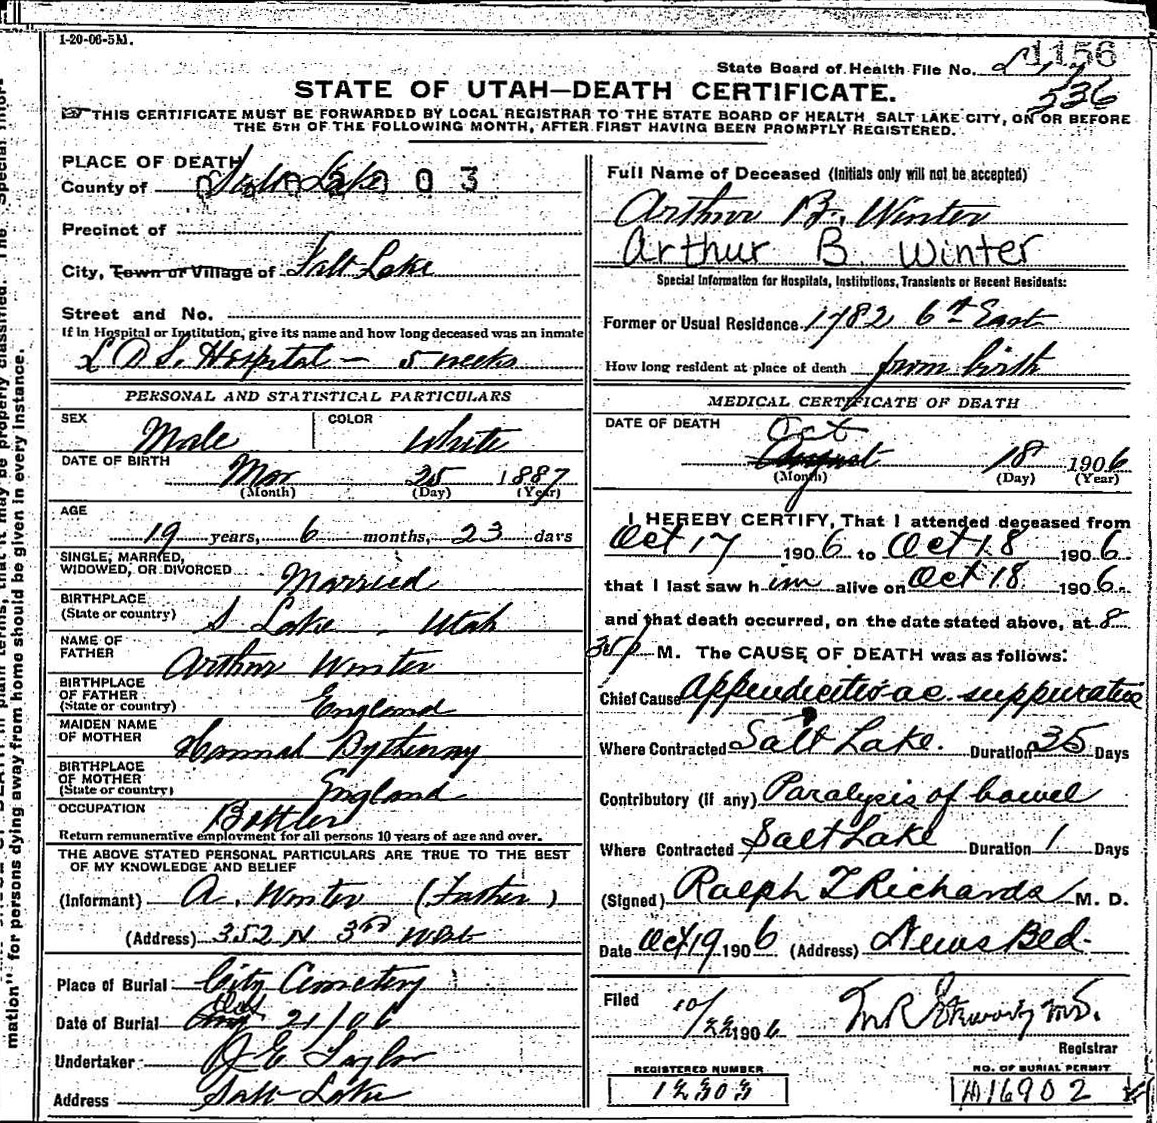 1-20-06-5M.
1156
State Board of Health File No. 536
STATE OF UTAH—DEATH CERTIFICATE.
THIS CERTIFICATE MUST BE FORWARDED BY LOCAL REGISTRAR TO THE STATE BOARD OF HEALTH SALT LAKE CITY, ON OR BEFORE
THE 5TH OF THE FOLLOWING MONTH, AFTER FIRST HAVING BEEN PROMPTLY REGISTERED.
PLACE OF DEATH
County of Salt Lake
Precinct of
City, Town or Village of Salt Lake
Street and No.
If in Hospital or Institution, give its name and how long deceased was an inmate
L D S. Hospital — 5 weeks
PERSONAL AND STATISTICAL PARTICULARS
SEX Male COLOR White
DATE OF BIRTH Mar 25 1887
(Month) (Day) (Year)
AGE
19 years, 6 months, 23 days
SINGLE, MARRIED,
WIDOWED, OR DIVORCED Married
BIRTHPLACE
(State or country) S Lake, Utah
NAME OF
FATHER Arthur Winter
BIRTHPLACE
OF FATHER
(State or country) England
MAIDEN NAME
OF MOTHER Hannah
BIRTHPLACE
OF MOTHER
(State or country) England
OCCUPATION Bottler
Return remunerative employment for all persons 10 years of age and over.
THE ABOVE STATED PERSONAL PARTICULARS ARE TRUE TO THE BEST
OF MY KNOWLEDGE AND BELIEF
(Informant) A. Winter (Father)
(Address) 352 N 3rd West
Place of Burial City Cemetery
Date of Burial Oct 21/06
Undertaker E. Taylor
Address Salt Lake
Full Name of Deceased (Initials only will not be accepted)
Arthur B. Winter
Arthur B. Winter
Special Information for Hospitals, Institutions, Transients or Recent Residents:
Former or Usual Residence 1782 6th East
How long resident at place of death from birth
MEDICAL CERTIFICATE OF DEATH
DATE OF DEATH Oct
August 18 1906
(Month) (Day) (Year)
I HEREBY CERTIFY, That I attended deceased from
Oct 17 1906 to Oct 18 1906
that I last saw him alive on Oct 18 1906
and that death occurred, on the date stated above, at 8
35 p M. The CAUSE OF DEATH was as follows:
Chief Cause Appendicitis ac. suppurative
Where Contracted Salt Lake. Duration 35 Days
Contributory (if any) Paralysis of bowel
Where Contracted Salt Lake Duration 1 Days
(Signed) Ralph T Richards M. D.
Date Oct 19 1906 (Address) News Bld.
Filed 10/22 1906
Registrar
REGISTERED NUMBER
12303
NO. OF BURIAL PERMIT
A16902
mation" for persons dying away from home should be given in every instance.